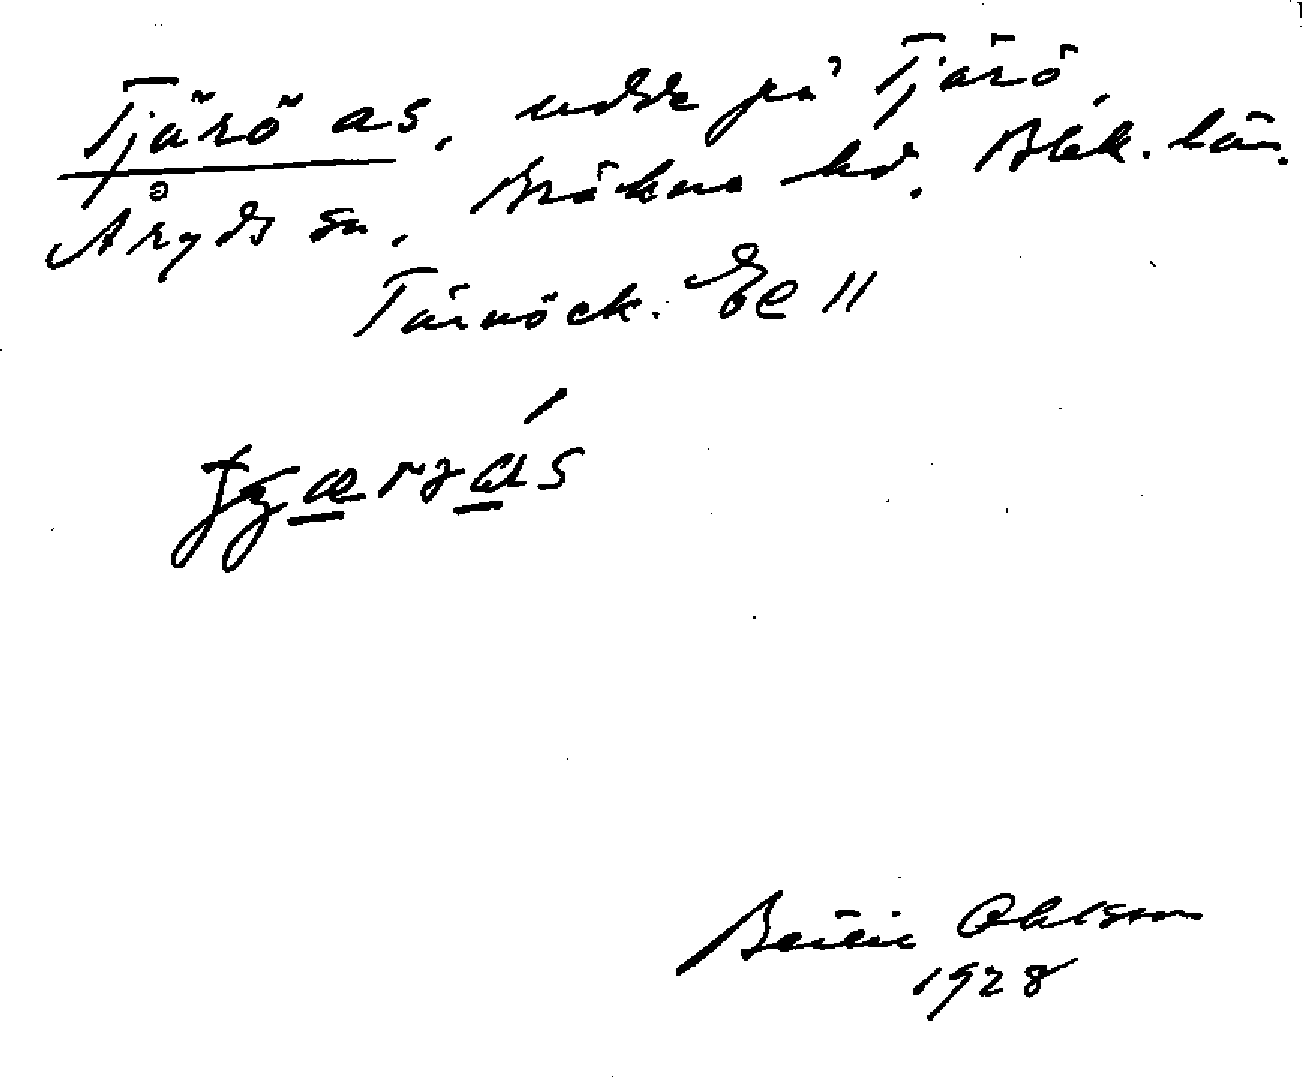 Tjärö as, udde på Tjärö,
Åryds sn, Bräkne hd, Blek. län.
Tärnöck. Ee 11
Ohlsson
1928